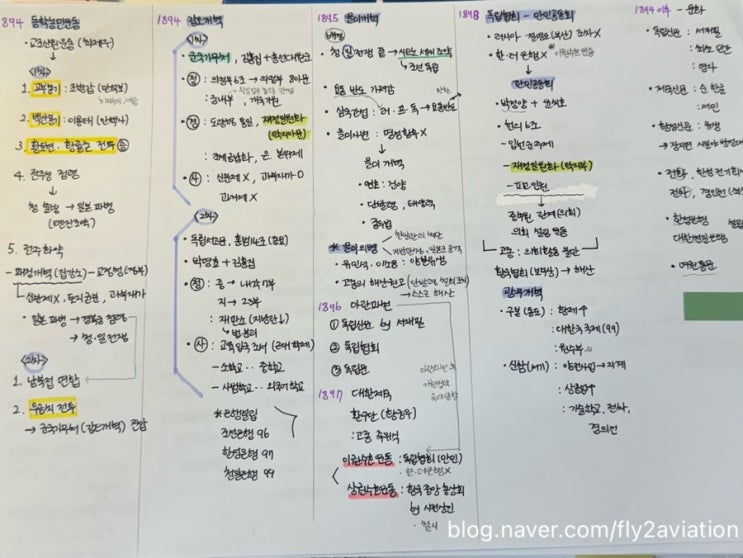 1894 동학농민운동
• 교조신원운동 (최제우)
<1차>
1. 고부봉기 : 조병갑 (만석보)
2. 백산봉기 : 이용태 (안핵사)
3. 황토현 · 황룡촌 전투 승
4. 전주성 점령
청 출병 → 일본 파병
(텐진조약)
5. 전주화약
- 폐정개혁 (집강소) - 교정청 (정부)
신분제 X, 토지균분, 과부재가
• 일본 파병 → 경복궁 점령
→ 청·일전쟁
<2차>
1. 남북접 연합
2. 우금치 전투
→ 군국기무처 (갑오개혁) 전담
1894 갑오개혁
<1차>
• 군국기무처, 김홍집 + 흥선대원군
• 정 : 의정부 6조 → 의정부 8아문
: 궁내부, 개국기원
• 경 : 도량형 통일, 재정일원화
(탁지아문)
: 조세금납화, 은 본위제
• 사 : 신분제 X, 과부재가 O
과거제 X
<2차>
• 독립서고문, 홍범14조 (종묘)
• 박영효 + 김홍집
• 정 : 중 → 내각 7부
지 → 23부
: 재판소 (지방관 ↓)
• 사 : 교육입국 조서 (근대 학제)
- 소학교 · · 중학교
- 사범학교 · · 외국어학교
* 은행설립
조선은행 96
한성은행 97
천일은행 99
1895 을미개혁
• 청일전쟁 끝 → 시모노세키 조약
↳ 조선 독립
• 요동 반도 가져감
• 삼국간섭 : 러 · 프 · 독 → 요동반도
• 을미사변 : 명성황후 X
↓
을미개혁
• 연호 : 건양
• 단발령, 태양력
• 종두법
* 을미의병
• 유인석, 이소응 : 양반유생
• 고종의 해산권고 (단발령 철회 조서)
→ 스스로 해산
1896 아관파천
① 독립신문 by 서재필
② 독립협회
③ 독립문
1897 대한제국
환구단 (황궁우)
: 고종 즉위식
이권수호운동 : 독립협회 (만민)
한·러은행 X
상권수호운동 : 황국 중앙 총상회
by 시전상인
1898 독립협회 - 만민공동회
• 러시아 절영도 (부산) 조차 X
• 한·러 은행 X * 이권수호 운동
만민공동회
• 박정양 + 윤치호
• 헌의 6조
- 입헌군주제
- 재정일원화 (탁지부)
↓
중추원 관제 (의회)
의회 설립 운동
고종 : 의회활동 불만
황국협회 (보부상) → 해산
광무개혁
• 구본 (옛 것) : 황제 ↑
대한국 국제 (99)
: 원수부
• 신참 : 양전사업 → 지계
: 상공업 ↑
: 기술학교, 전차,
경의선
1894 이후 - 문화
• 독립신문 : 서재필
: 최초 민간
: 영사
• 제국신문 : 순 한글
: 서민
• 황성신문 : 유생
• 전화, 한성 전기회
전차, 경인선
• 한성은행 설립
대한천일은행
• 여권통문
blog.naver.com/fly2aviation